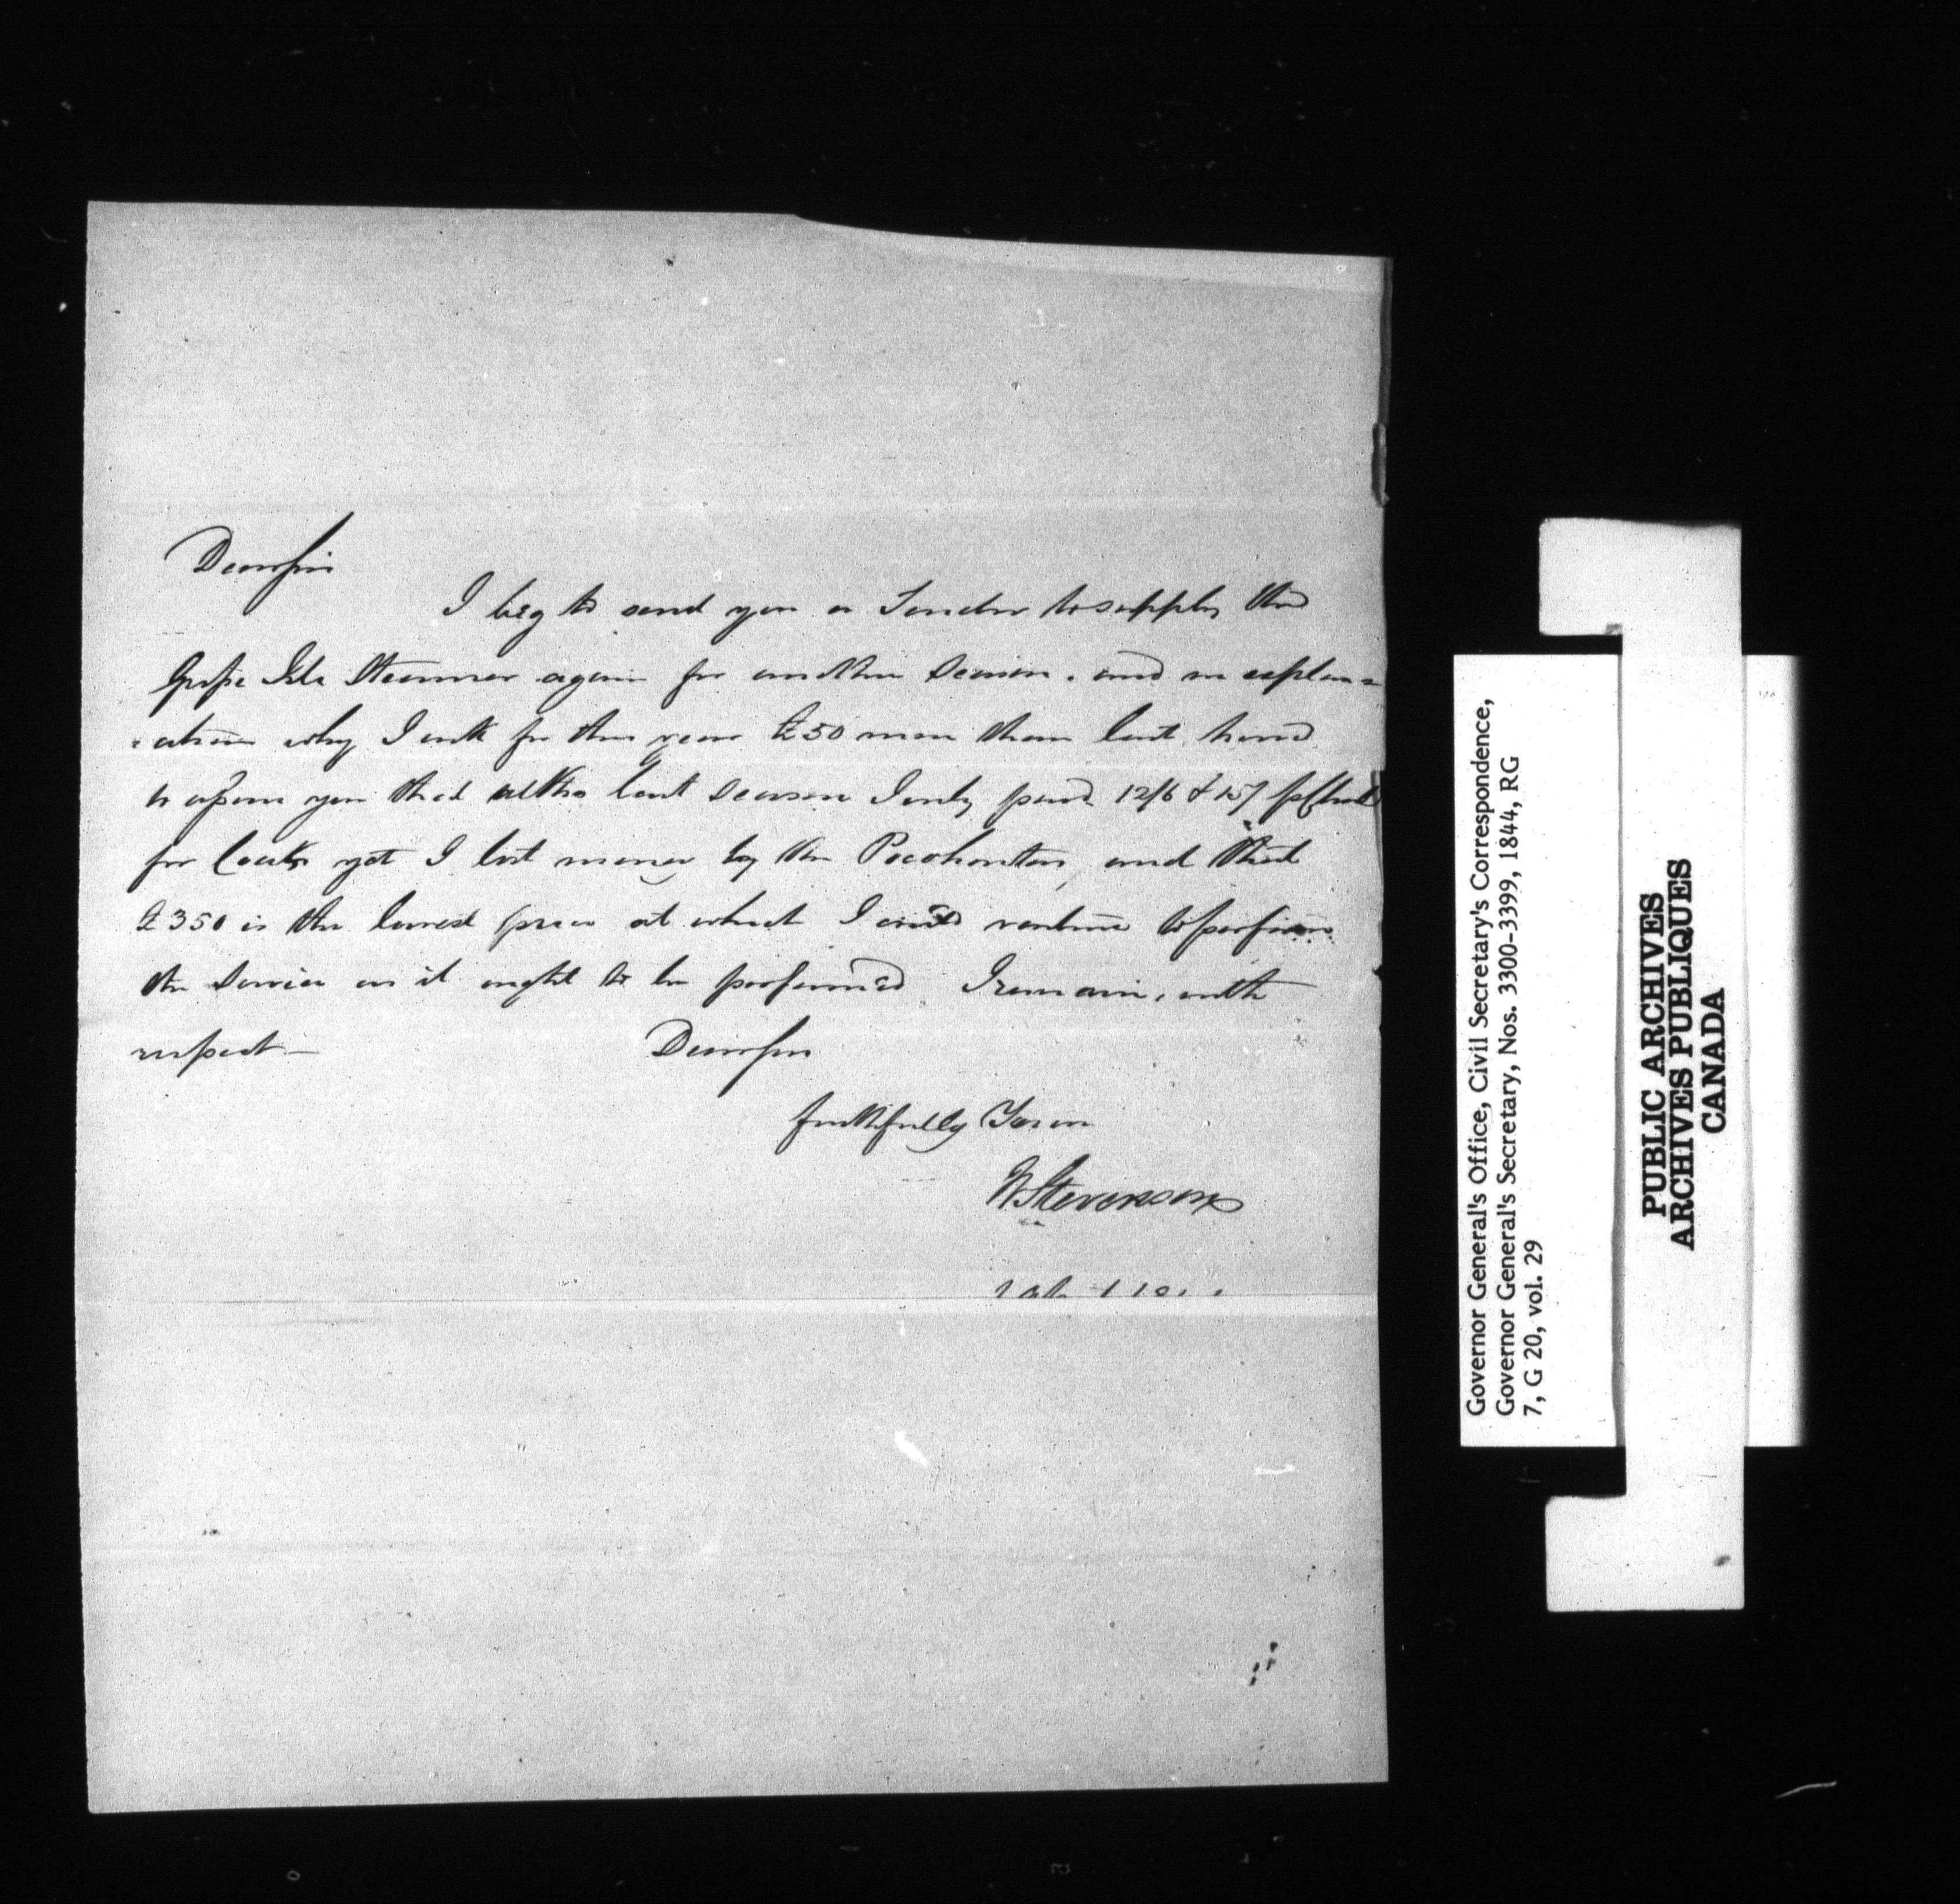 Dear Sir
I beg to send you a Tender to supply the
Grosse Isle Steamer again for another Season. and in explan=
=ation why I ask for this year £50 more than last,
to assure you that altho last Season I only paid 12/6 & 15/
for Coals yet I lost money by the Pocohontas, and that
£350 is the lowest price at which I could venture to perform
the Service as it ought to be performed. I remain, with
respect —
Dear Sir
faithfully Yours
Stevenson
Governor General's Office, Civil Secretary's Correspondence,
Governor General's Secretary, Nos. 3300-3399, 1844, RG
7, G 20, vol. 29
PUBLIC ARCHIVES
ARCHIVES PUBLIQUES
CANADA